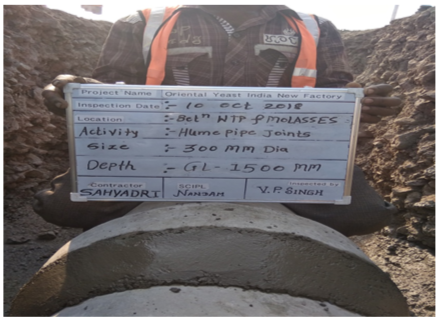 Project Name Oriental Yeast India New Factory
Inspection Date :- 10 Oct 2018
Location :- Betn WTP & MOLASSES
Activity :- Hume pipe Joints
Size :- 300 MM Dia
Depth :- GL- 1500 MM
Contractor SCIPL Inspected by
SAHYADRI V.P. SINGH